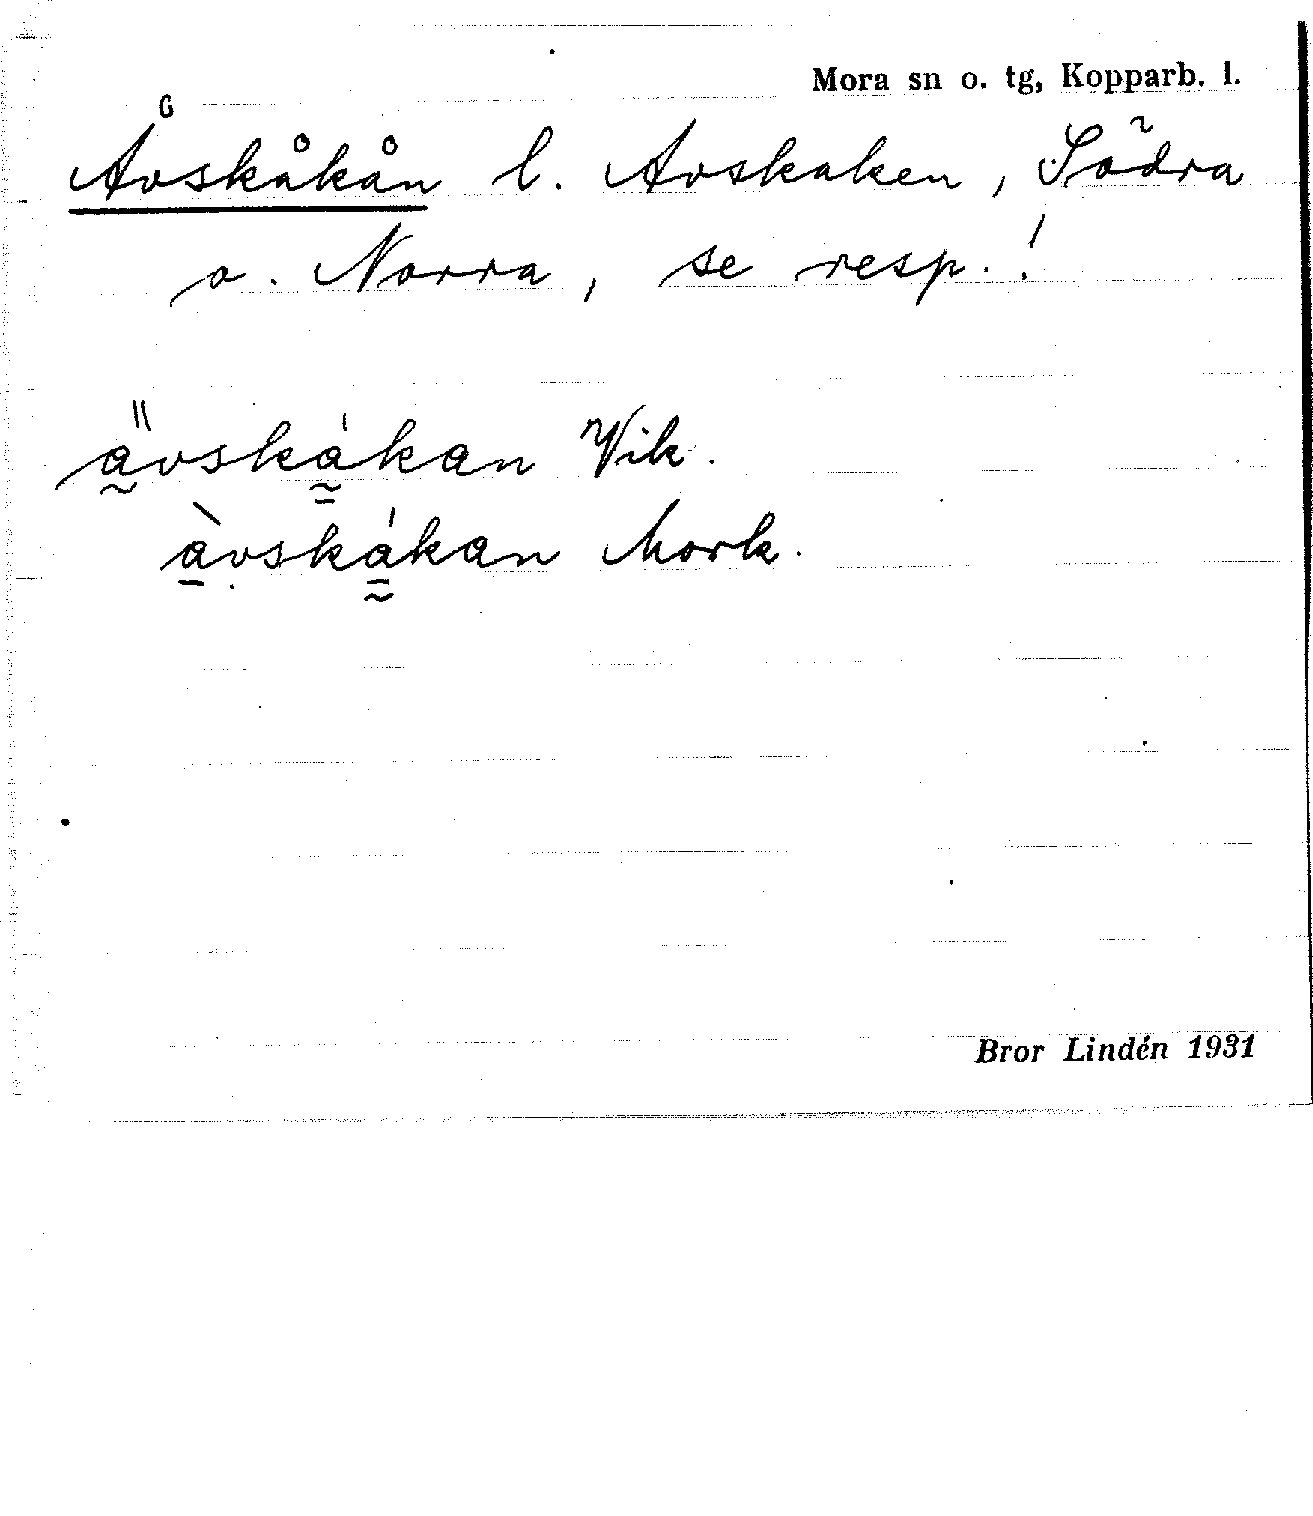 Mora sn o. tg, Kopparb. l.
Åvskåkån l. Avskaken, Södra
o. Norra, se resp.!
a̰̎vská̰̳kan Vik.
à̱vská̳̰kan Mork.
Bror Lindén 1931